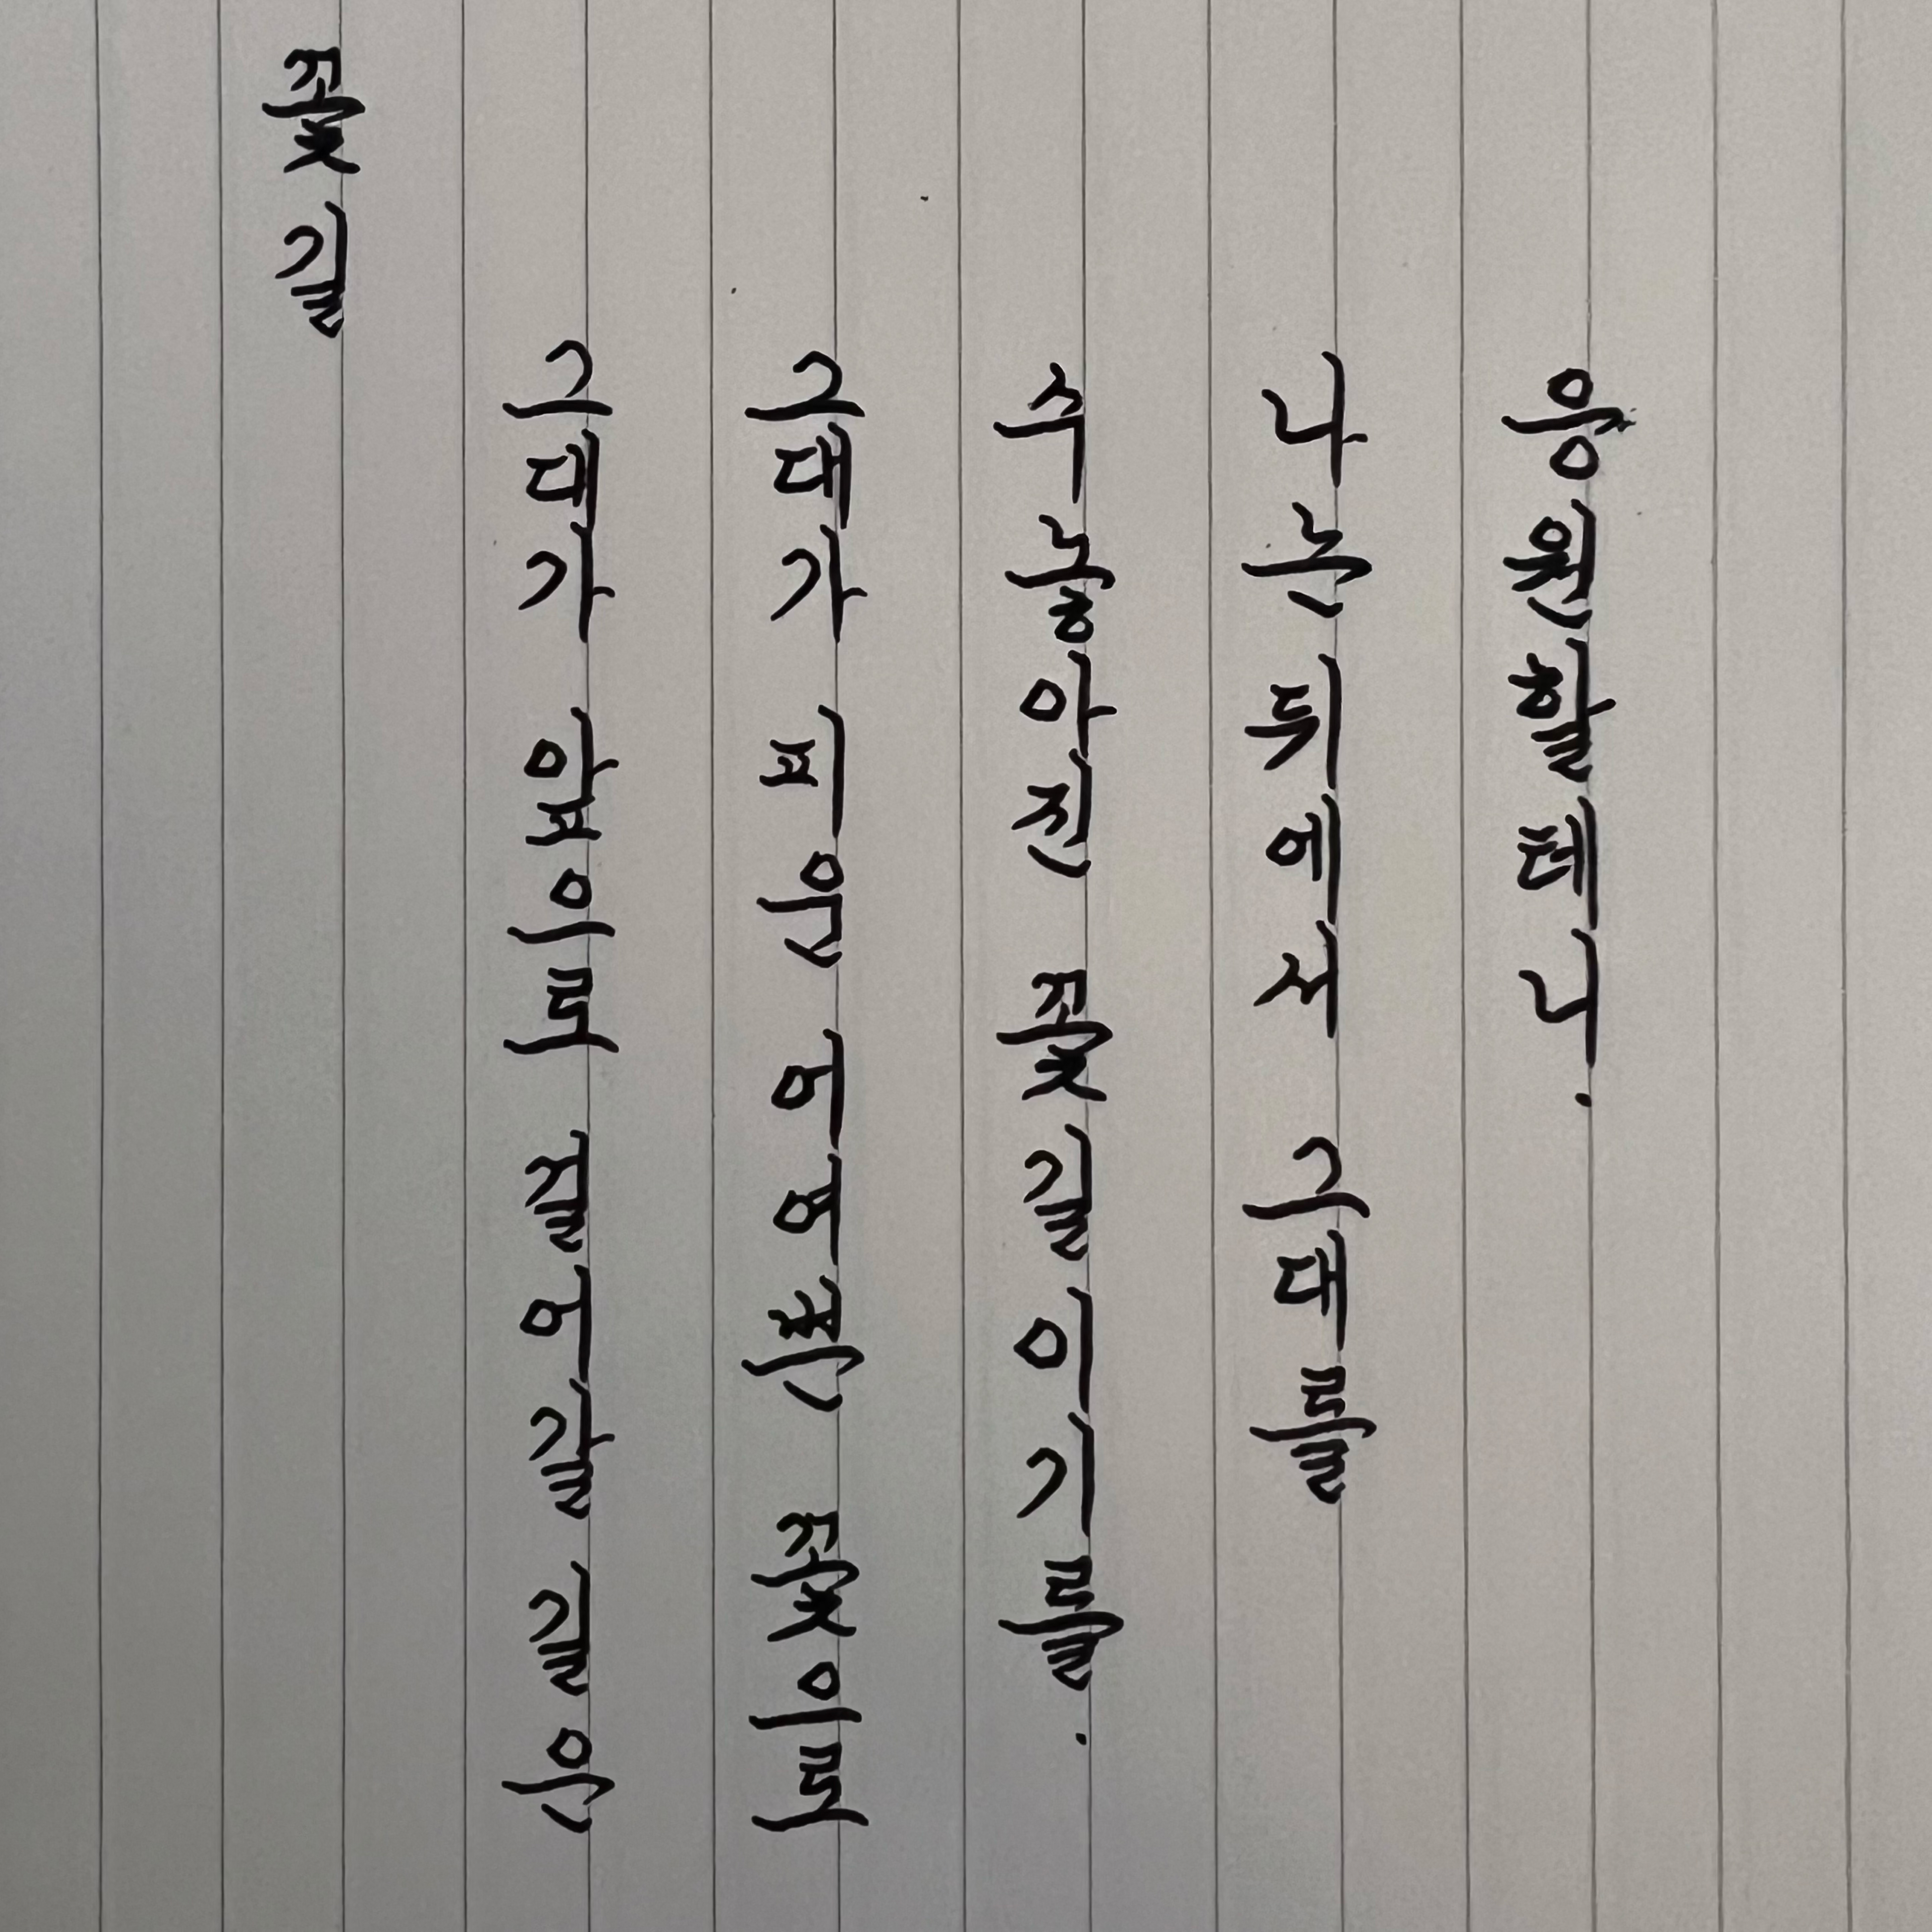 꽃길
그대가 앞으로 걸어갈 길은
그대가 피운 어여쁜 꽃으로
수놓아진 꽃길이기를.
나는 뒤에서 그대를
응원할테니.